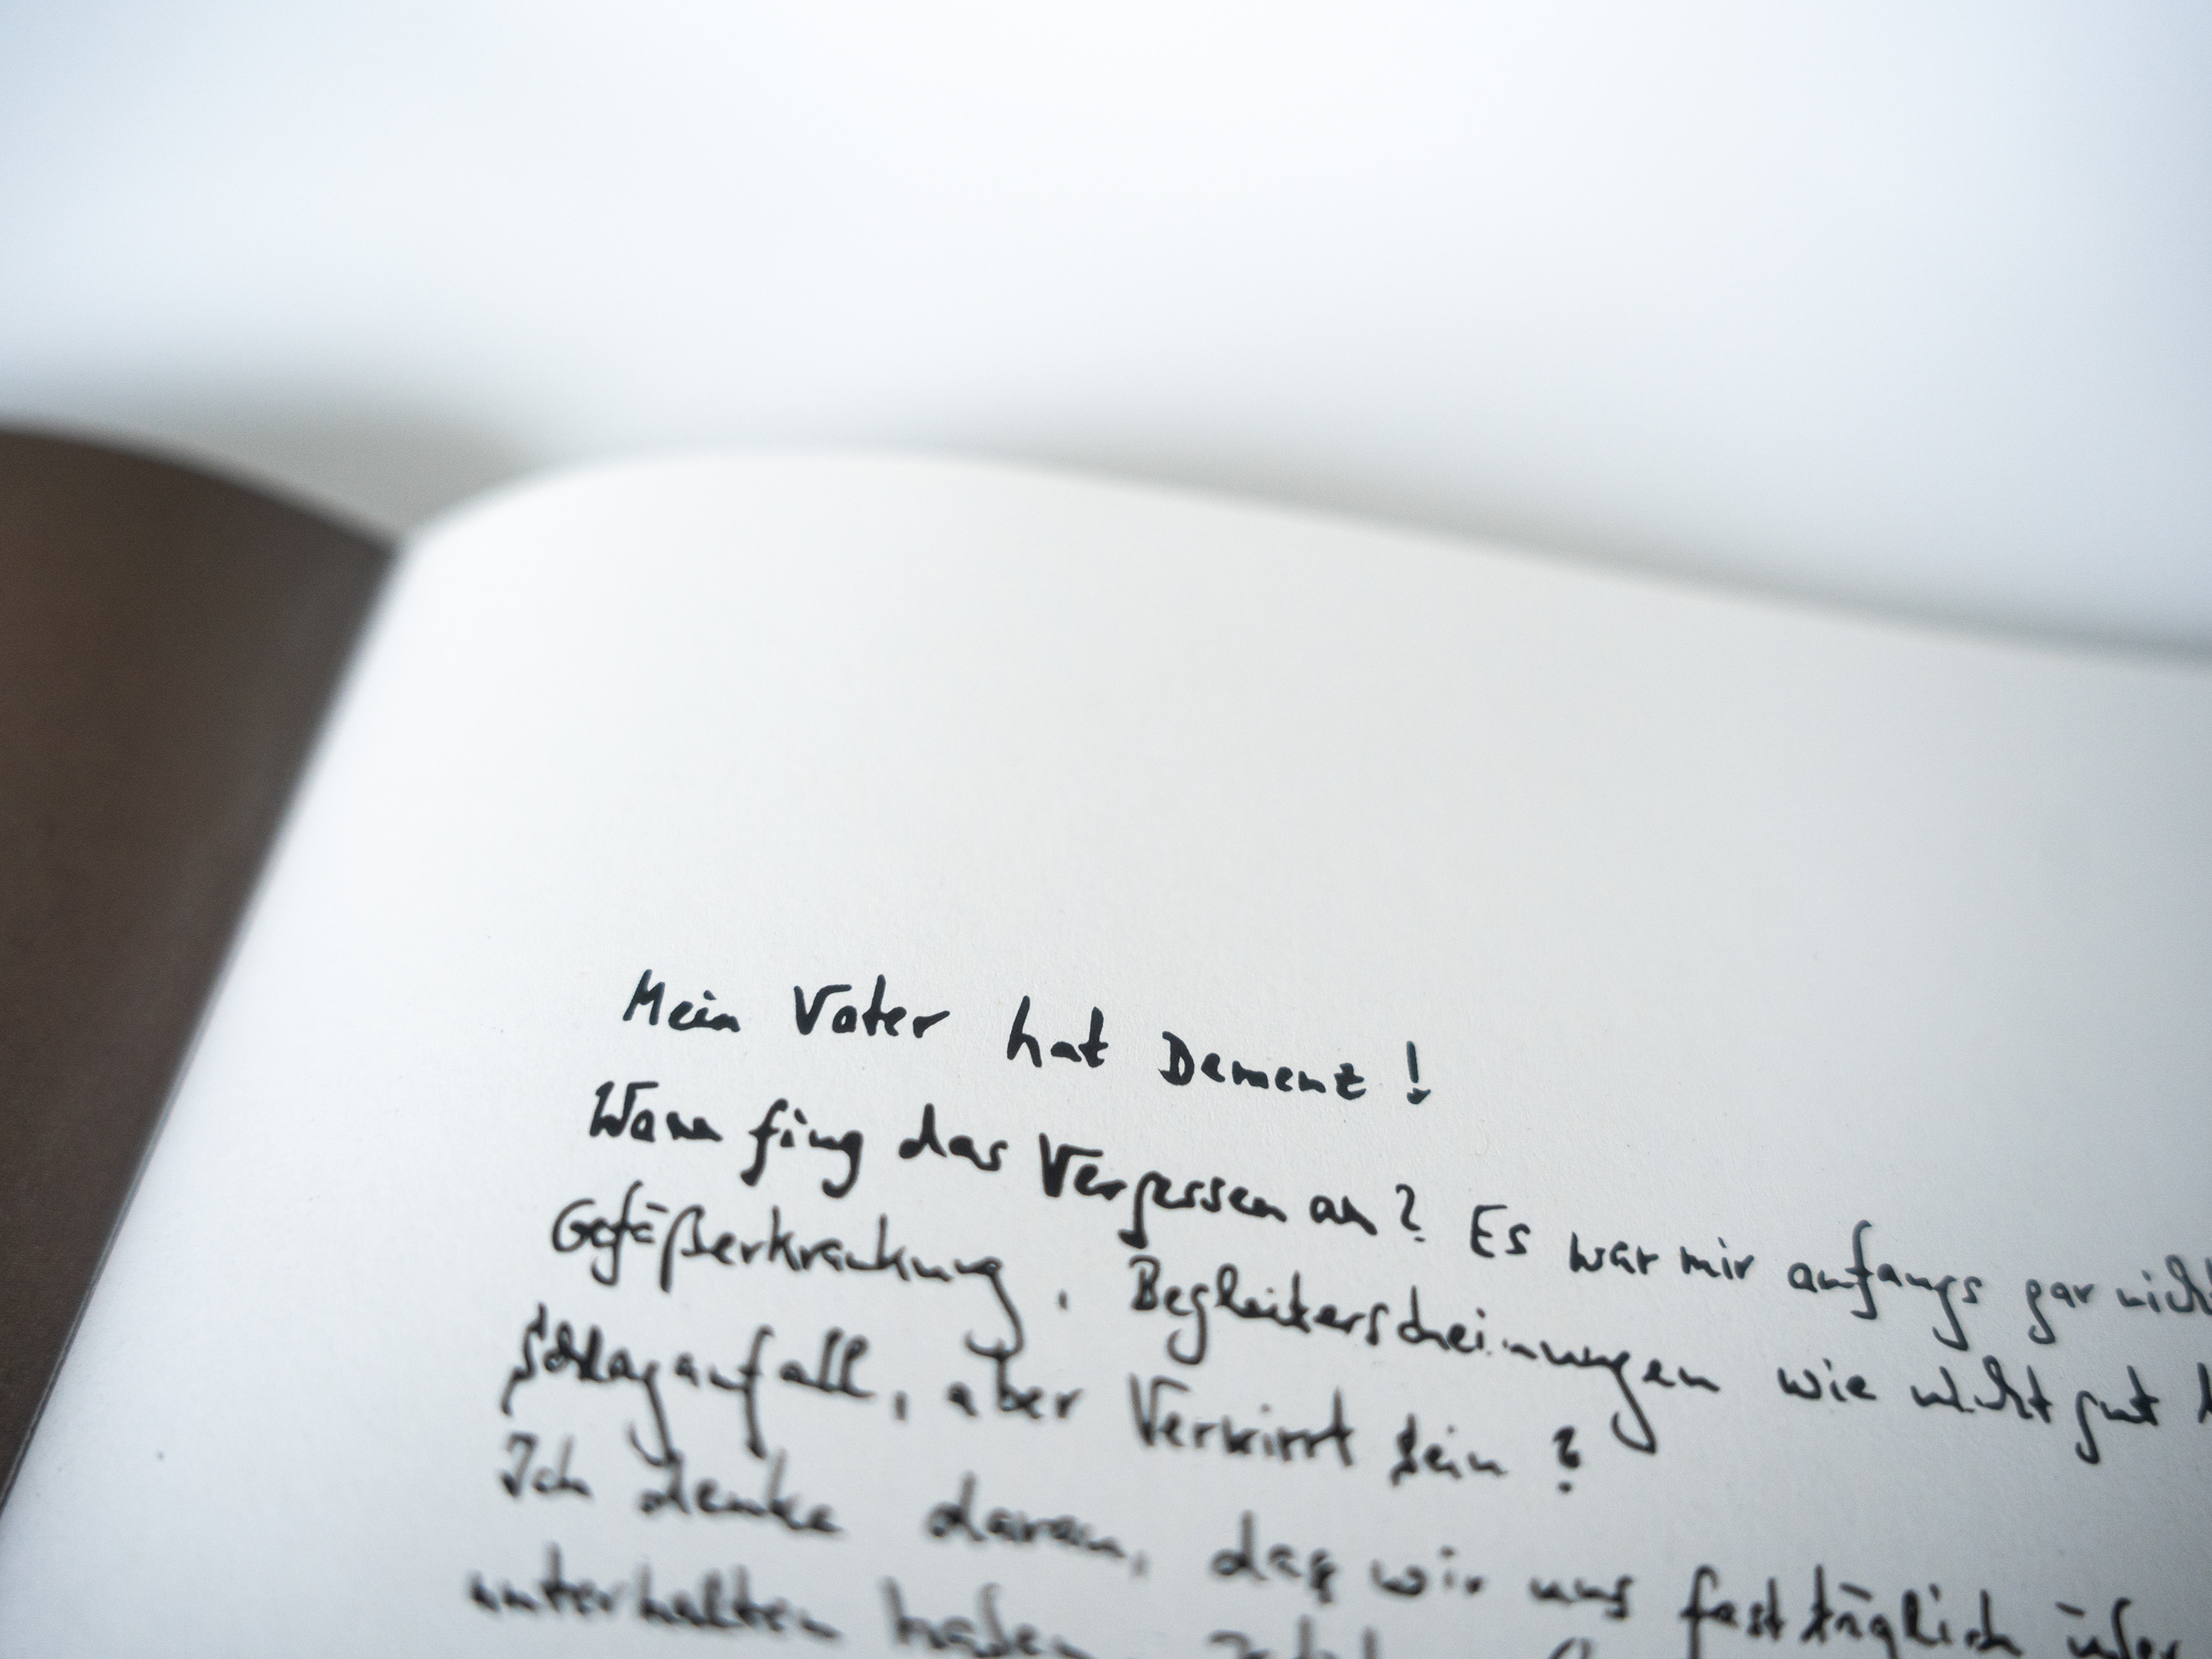 Mein Vater hat Demenz!
Wann fing das Vergessen an? Es war mir anfangs gar nicht
Gefäßerkrankung, Begleiterscheinungen wie nicht gut
Schlaganfall, aber Verwirrt sein?
Ich denke daran, daß wir uns fast täglich über
unterhalten haben